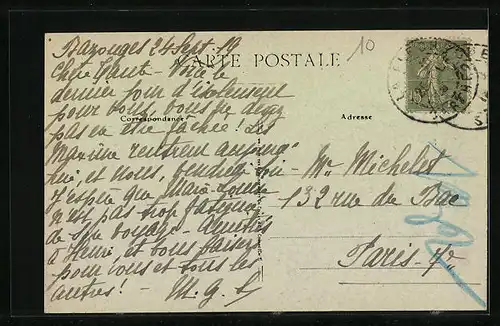 Bazouges 24 Sept. 19
CARTE POSTALE
10
Chère Tante - Voilà le
dernier jour d'isolement
pour vous, vous ne devez
pas en être fâchée! Les
Correspondance
Maxime rentrent aujourd'
hui, et nous, vendredi soir -
J'espère que Marie-Louise
n'est pas trop fatiguée
de son voyage - Amitiés
à Henri, et bons baisers
pour vous et tous les
autres! - M. G. L.
Adresse
Mme Michelot
132 rue du Bac
Paris - 7e